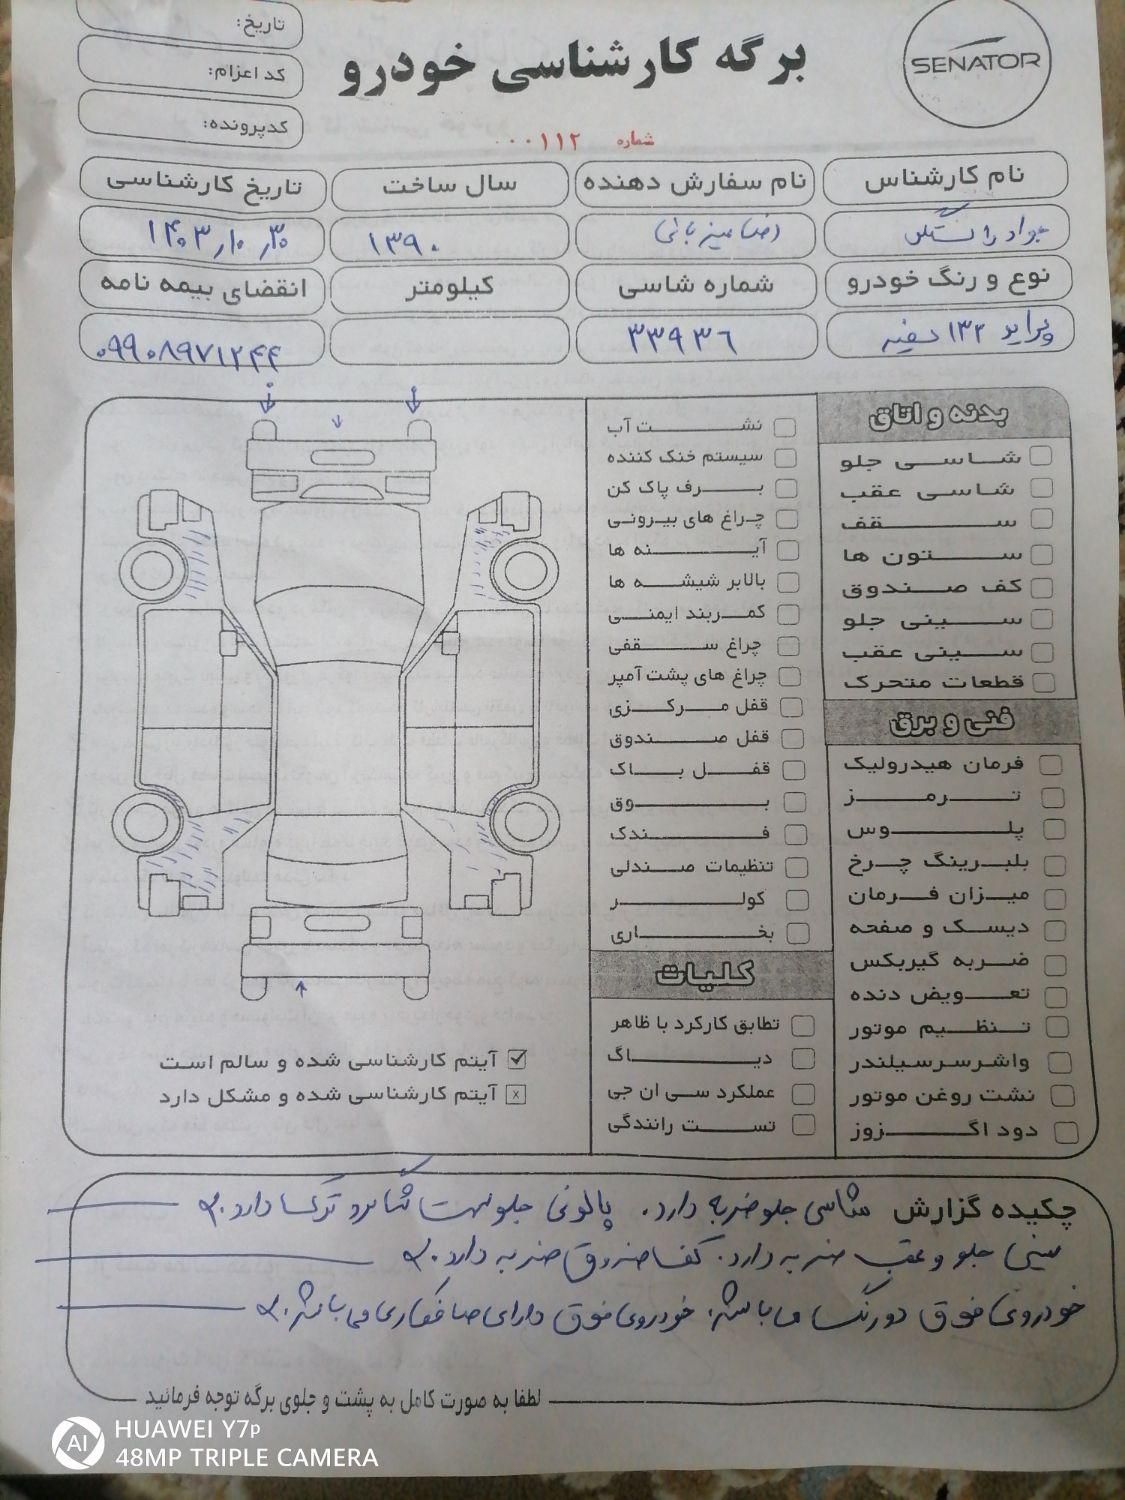 تاریخ:
کد اعزام:
کدپرونده:
برگه کارشناسی خودرو
SENATOR
شماره ۰۰۱۱۲
نام کارشناس
نام سفارش دهنده
سال ساخت
تاریخ کارشناسی
جواد
رضا میزبانی
۱۳۹۰
۱۴۰۳٫۱۰٫۳۰
نوع و رنگ خودرو
شماره شاسی
کیلومتر
انقضای بیمه نامه
پراید ۱۳۲ سفید
۳۳۹۳۶
۰۹۹۰۸۹۷۱۲۴۴
بدنه و اتاق
شاسی جلو
شاسی عقب
سقف
ستون ها
کف صندوق
سینی جلو
سینی عقب
قطعات متحرک
فنی و برق
فرمان هیدرولیک
ترمز
پلوس
بلبرینگ چرخ
میزان فرمان
دیسک و صفحه
ضربه گیربکس
تعویض دنده
تنظیم موتور
واشرسرسیلندر
نشت روغن موتور
دود اگزوز
نشت آب
سیستم خنک کننده
برف پاک کن
چراغ های بیرونی
آینه ها
بالابر شیشه ها
کمربند ایمنی
چراغ سقفی
چراغ های پشت آمپر
قفل مرکزی
قفل صندوق
قفل باک
بوق
فندک
تنظیمات صندلی
کولر
بخاری
کلیات
تطابق کارکرد با ظاهر
دیاگ
عملکرد سی ان جی
تست رانندگی
آیتم کارشناسی شده و سالم است
آیتم کارشناسی شده و مشکل دارد
چکیده گزارش شاسی جلو ضربه دارد. پالونی جلو سمت شاگرد ترک دارد.
سینی جلو و عقب ضربه دارد. کف صندوق ضربه دارد.
خودروی فوق دو رنگ می باشد. خودروی فوق دارای صافکاری می باشد.
لطفا به صورت کامل به پشت و جلوی برگه توجه فرمائید
AI HUAWEI Y7p
48MP TRIPLE CAMERA